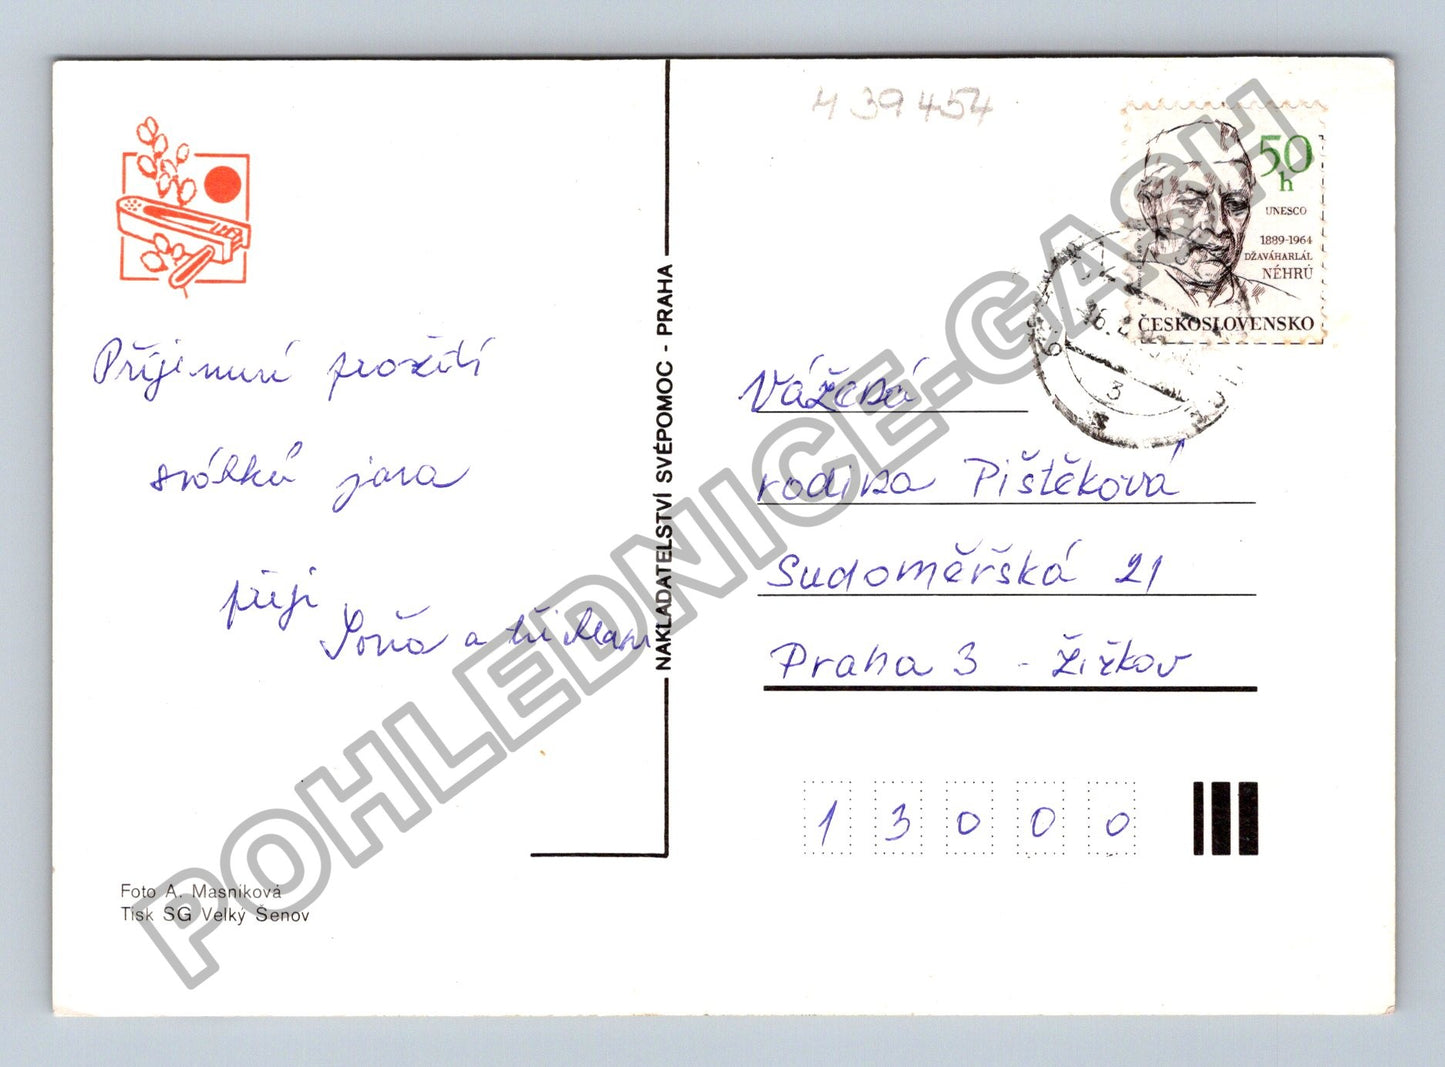 M 39 454
50
h
UNESCO
1889-1964
DŽAVÁHARLÁL
NÉHRÚ
ČESKOSLOVENSKO
3
Příjemné prožití
svátků jara
přeji
Soňa a
NAKLADATELSTVÍ SVÉPOMOC - PRAHA
Vážená
rodina Pištěková
Sudoměřská 21
Praha 3 - Žižkov
1 3 0 0 0
Foto A. Masníková
Tisk SG Velký Šenov
POHLEDNICE-GASH